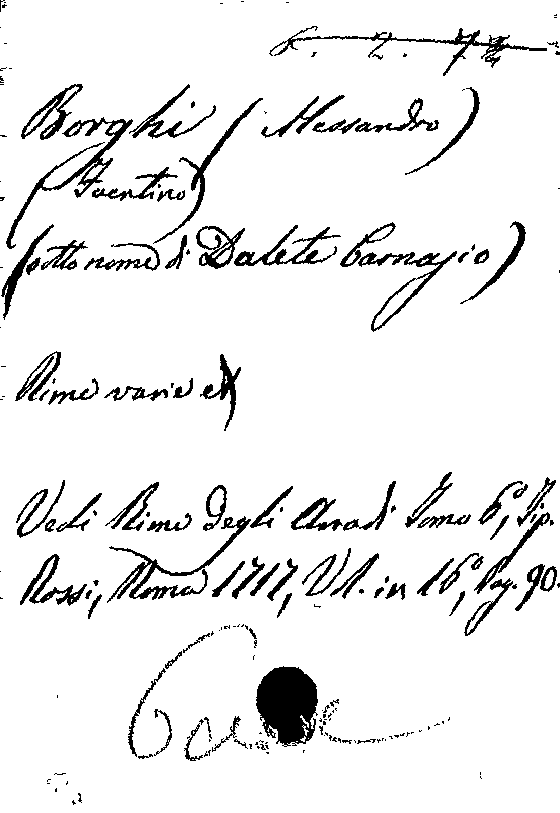 6. 2. 78
Borghi (Alessandro)
(Faentino)
(sotto nome di Dalete Carnasio)
Rime varie
Vedi Rime degli Arcadi Tomo 6°, Tip.
Rossi, Roma 1717, Vl. in 16°, Pag. 90.